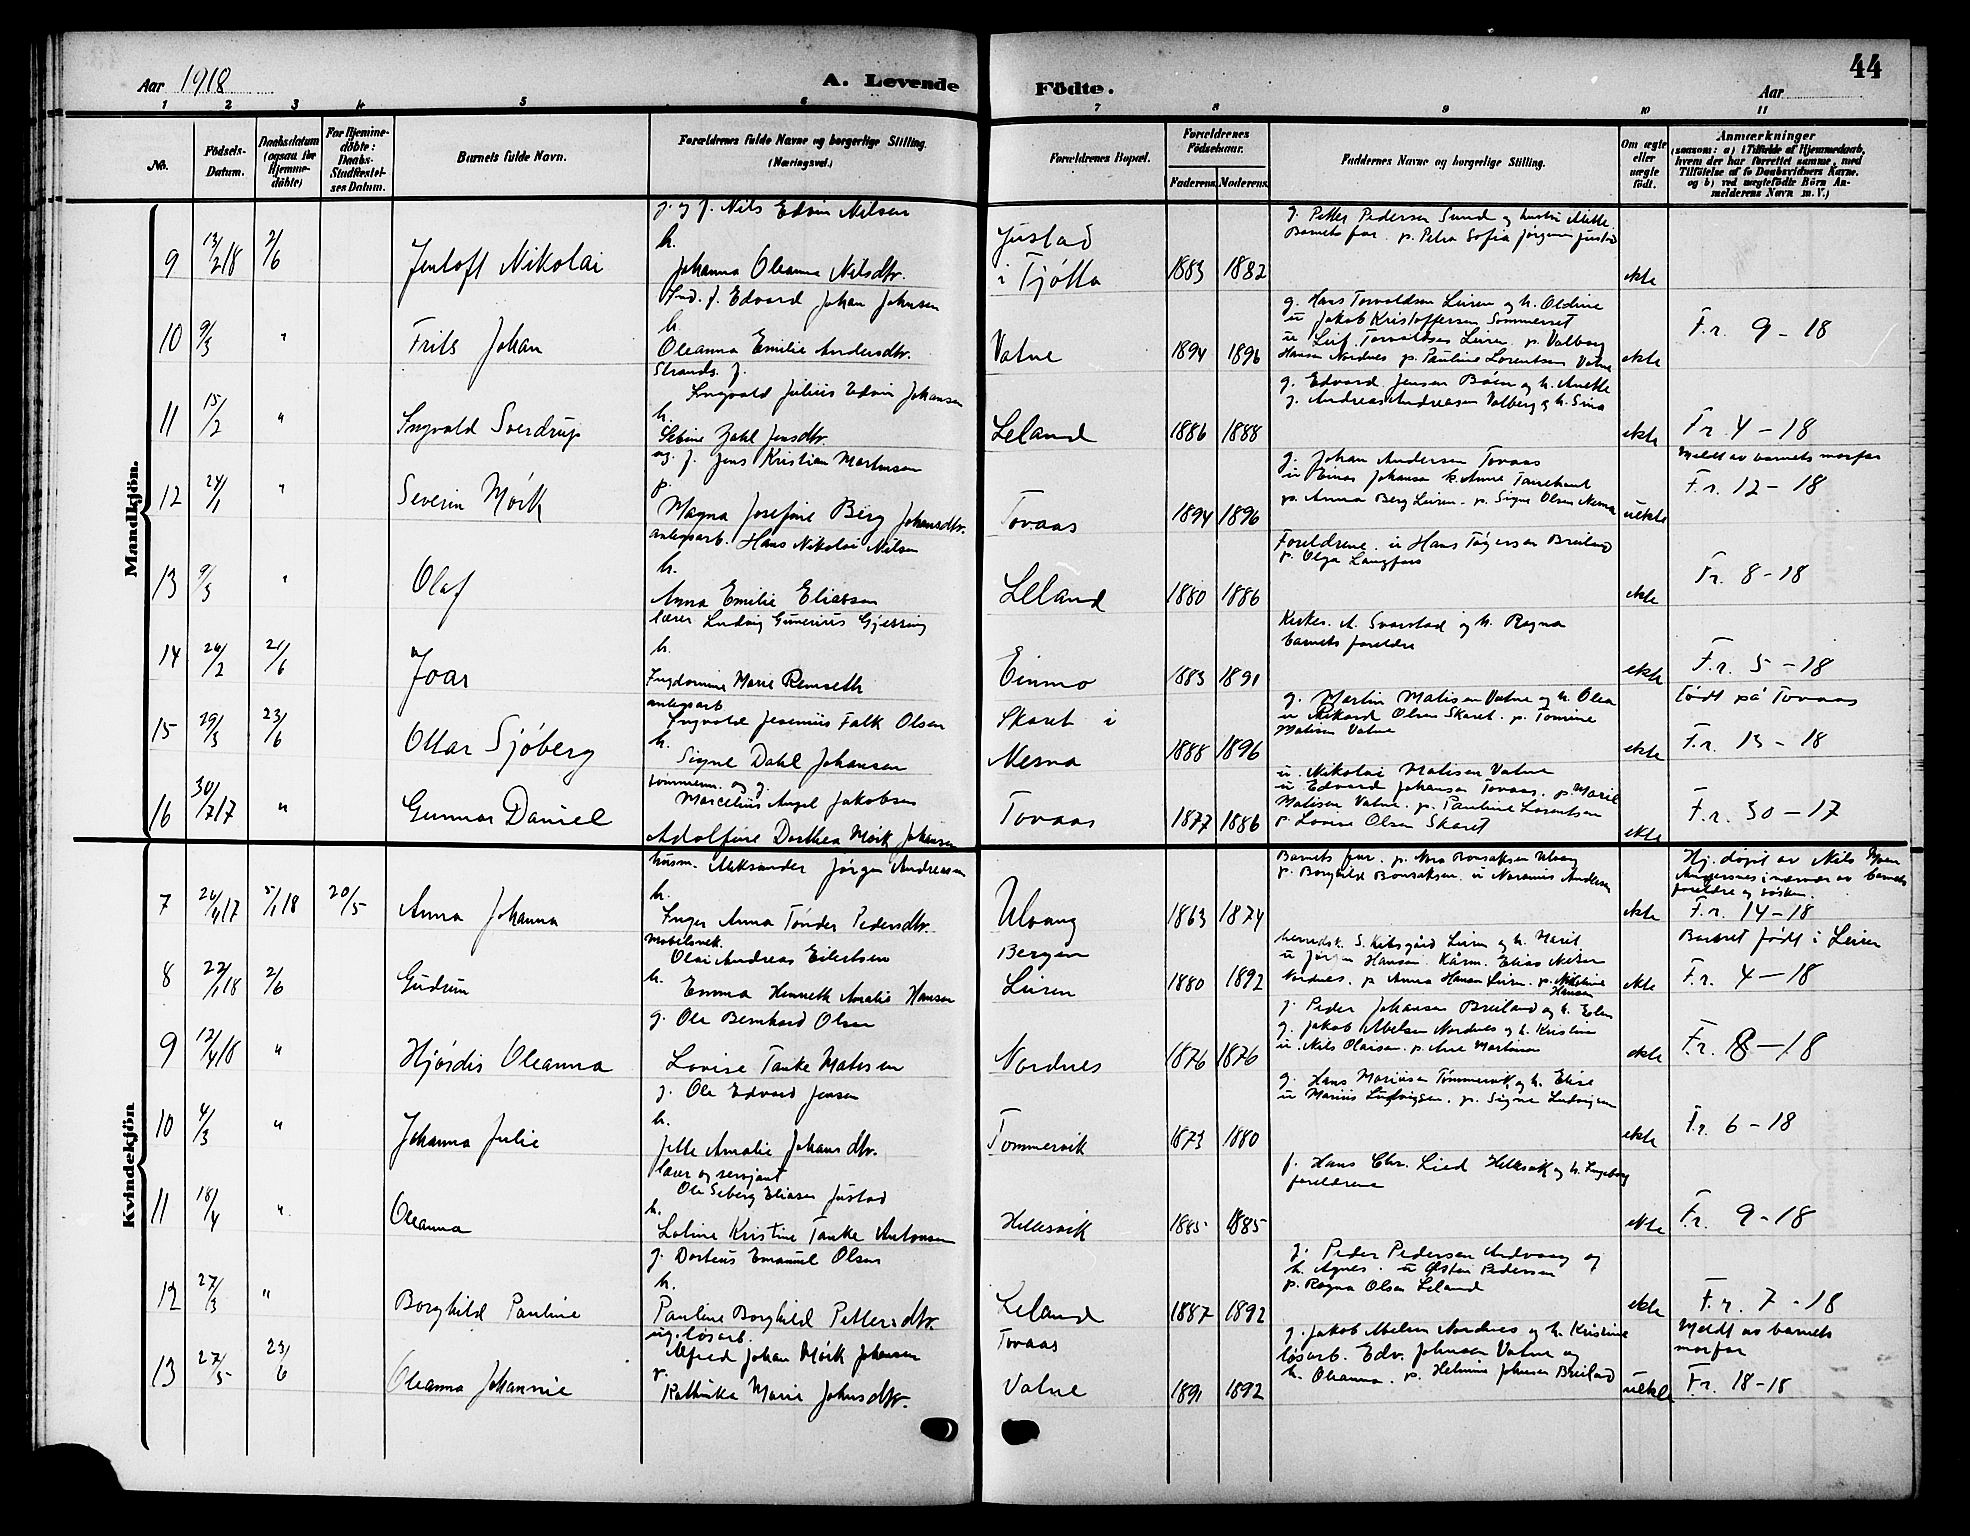 Aar 1918 A. Levende Födte. 44
Aar
1 2 3 4 5 6 7 8 9 10 11
No. Födsels-Datum. Daabsdatum (ogsaa for Hjemme-döbte) For Hjemme-döbte: Daabs-Stadfæstel-ses Datum. Barnets fulde Navn. Forældrenes fulde Navne og borgerlige Stilling. (Næringsvei.) Forældrenes Bopæl. Forældrenes Födselsaar. Faderens. Moderens. Faddernes Navne og borgerlige Stilling. Om ægte eller uægte födt. Anmærkninger (saasom: a) i Tilfælde af Hjemmedaab, hvem der har forrettet samme, med Tilföielse af to Daabsvidners Navne. og b) ved uægtefödte Börn An-melderens Navn m. V.)
Mandkjön.
g. og f. Nils Edvin Nilsen
h.
9 13/2 18 2/6 Jentoft Nikolai Johanna Oleanna Nilsdtr. Justad i Tjötta 1883 1882 ekte
g. Petter Pedersen Sund og hustru Mette
Barnets far. p. Petra Sofia Jörgensen Justad
Ind. f. Edvard Johan Johnsen
h.
10 9/3 " Frits Johan Oleanna Emilie Andersdtr. Vatne 1894 1896 ekte F.r. 9-18
g. Hans Torvaldsen Leiren og h. Oldine
u Jakob Kristoffersen Sommerset
u Leif Torvaldsen Leiren p. Valborg
Hansen Nordnes p. Pauline Lorentsen Vatne
Strands. f.
Ingvald Julius Edvin Johansen
h.
11 15/2 " Ingvald Sverdrup Sebine Zahl Jensdtr. Leland 1886 1888 ekte F.r. 4-18
g. Edvard Jensen Båen og h. Anette
g. Andreas Andreasen Valberg og h. Sina
ug. f. Jens Kristian Martinsen
p.
12 24/1 " Severin Mörk Magna Josefine Berg Johansdtr. Tovaas 1894 1896 uekte
Meldt av barnets morfar
F.r. 12-18
g. Johan Andersen Tovaas
u Einar Johansen
p. Anna Berg Leiren. p. Signe Olsen Nesna
anlegsarb. Hans Nikolai Nilsen
h.
13 9/3 " Olaf Anna Emilie Eliassen Leland 1880 1886 ekte F.r. 8-18
Foreldrene. u Hans Tögersen Breiland
p. Olga Langfors
lærer Ludvig Gunerius Gjessing
h.
14 26/2 21/6 Joar Ingdomine Marie Remseth Einmo 1883 1891 ekte F.r. 5-18
Kirkes. A. Svarstad og h. Ragna
barnets foreldre
anlegsarb
Ingvald Jesenius Falk Olsen
h.
15 29/3 23/6 Ottar Sjöberg Signe Dahl Johansen Skaret i Nesna 1888 1896 ekte
födt på Tovaas
F.r. 13-18
g. Martin Matisen Vatne og h. Olea
u Rikard Olsen Skaret. p. Tomine
Matisen Vatne
tømmerm. og g.
Marcelius Angel Jakobsen
16 30/7 17 " Gunnar Daniel Adolfine Dorthea Mörk Johansen Tovaas 1877 1886 ekte F.r. 30-17
u. Nikolai Matisen Vatne
u Edvard Johansen Tovaas. p. Marie
Matisen Vatne. p. Pauline Lorentsen
p. Lovise Olsen Skaret
Kvindekjön
husm. Aleksander Jørgen Andreassen
h.
7 26/4 17 5/1 18 20/5 Anna Johanna Inger Anna Tönder Pedersdtr. Ulvang 1863 1874 ekte
Hj. döpt av Nils
Angersnes i nærvær av barnets
foreldre og søsken
F.r. 14-18
Barnets far. p. Nora Bonsaksen Ulvang
p. Borghild Bonsaksen. u Naranius Andersen
Mobelsnek.
Olai Andreas Eilertsen
h.
8 22/1 18 2/6 Gudrun Emma Henneth Amalie Hansen Bergen Leiren 1880 1892 ekte
Barnet födt i Leiren
F.r. 4-18
herredsk. S. Kibsgård Leiren og h. Marit
u Jörgen Hansen Kårm. Elias Nilsen
Nordnes. p Anna Hansen Leiren. p. Nikoline Hansen
g. Ole Bernhard Olsen
9 12/4 18 " Hjördis Oleanna Lovise Tanke Matissen Nordnes 1876 1876 ekte F.r. 8-18
g. Peder Johansen Breiland og h. Elen
g. Jakob Abelsen Nordnes og h. Kristine
u. Nils Olaisen. p. Ane Martinsen
g. Ole Edvard Jensen
h.
10 4/3 " Johanna Julie Jette Amalie Johansdtr. Tömmervik 1873 1880 ekte F.r. 6-18
g. Hans Mariusen Tömmervik og h. Elise
u Marius Ludvigsen. p. Signe Ludvigsen
lærer og sersjant
Ole Seberg Eliasen Justad
h.
11 18/4 " Oleanna Lotine Kristine Tanke Antonsen Hellesvik 1885 1885 ekte F.r. 9-18
f. Hans Chr. Lied Hellesvik og h. Ingeborg
foreldrene
g. Dorteus Emanuel Olsen
h.
12 27/3 " Borghild Pauline Pauline Borghild Pettersdtr. Leland 1887 1892 ekte F.r. 7-18
g. Peder Pedersen Andvaag og
h. Agnes. u Östen Pedersen
p. Ragna Olsen Leland
ug. løsarb.
Alfred Johan Mörk Johansen
p.
13 27/5 23/6 Oleanna Johannie Kathinka Marie Johnsdtr. Tovaas Vatne 1891 1892 uekte
Meldt av barnets
morfar
F.r. 18-18
g. Jakob Abelsen Nordnes og h. Kristine
løsarb. Edv. Johnsen Vatne og
h. Oleanna. p. Helmine Johnsen Breiland